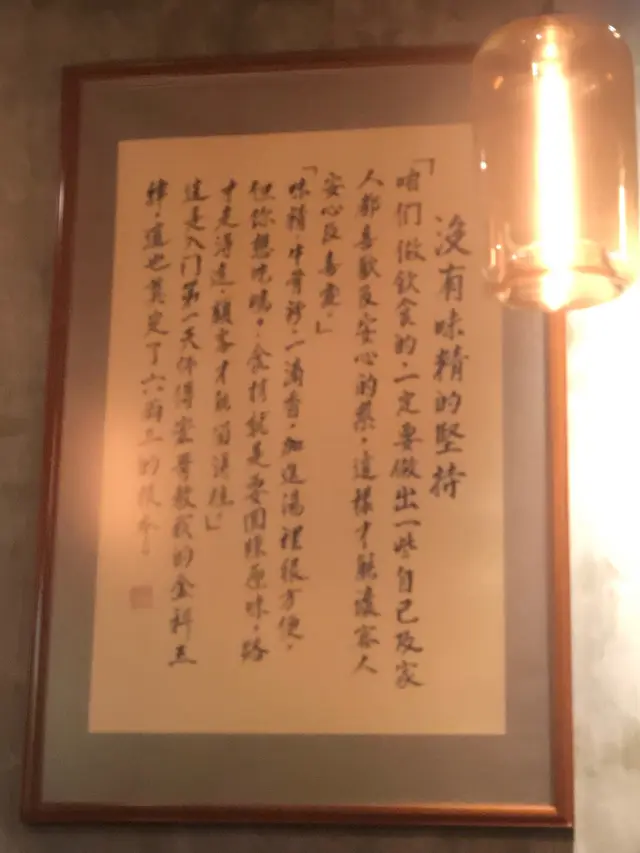 沒有味精的堅持
「咱们做飲食的,一定要做出一些自己及家
人都喜歡及安心的菜,這樣才能讓客人
安心及喜愛。」
「味精,牛骨粉,一滴香,加進湯裡很方便,
但你想吃嗎。食材就是要回歸原味,路
才走得遠,顧客才能留住」
這是入门第一天師傅哥教我的金科玉
律,這也奠定了六的根本。